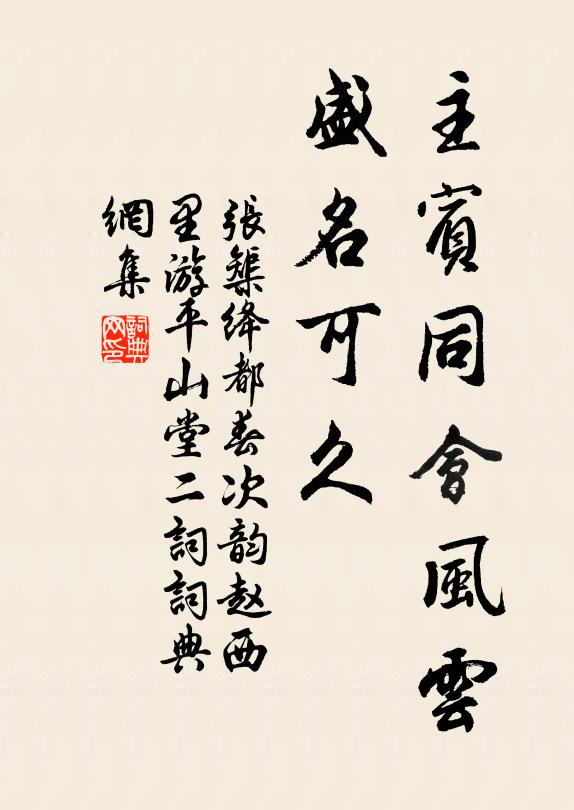 主賓同會風雲
盛名可久
張榘绛都春次韵赵西
里游平山堂二詞詞典
網集
詞典
网印